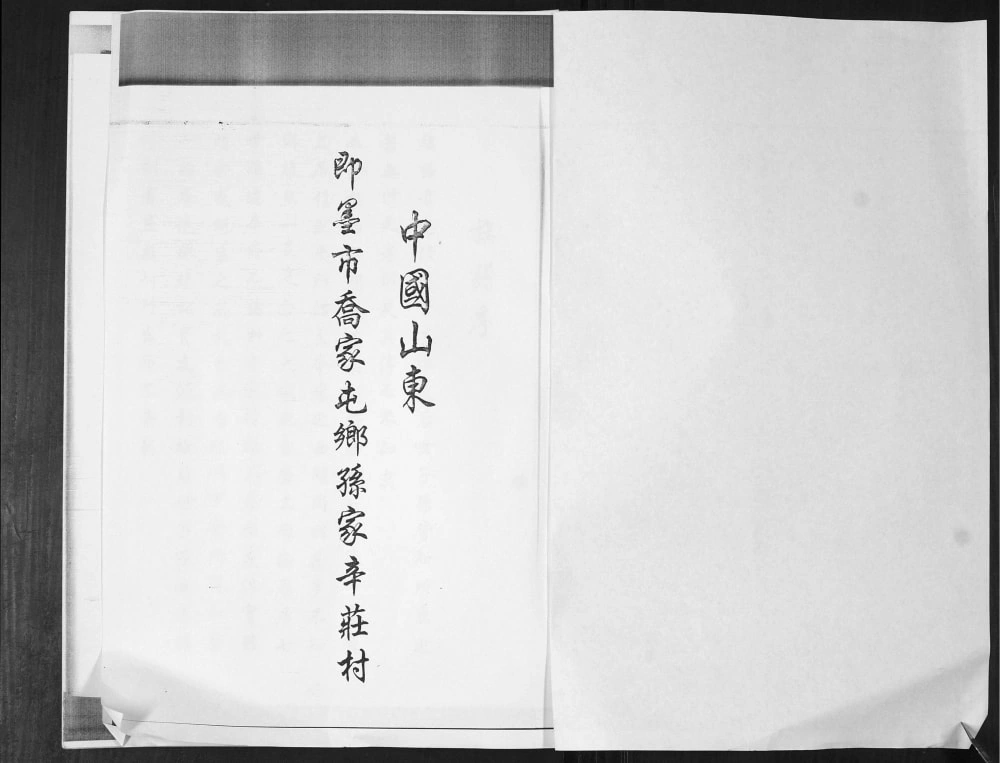 中國山東
即墨市喬家屯鄉孫家辛莊村